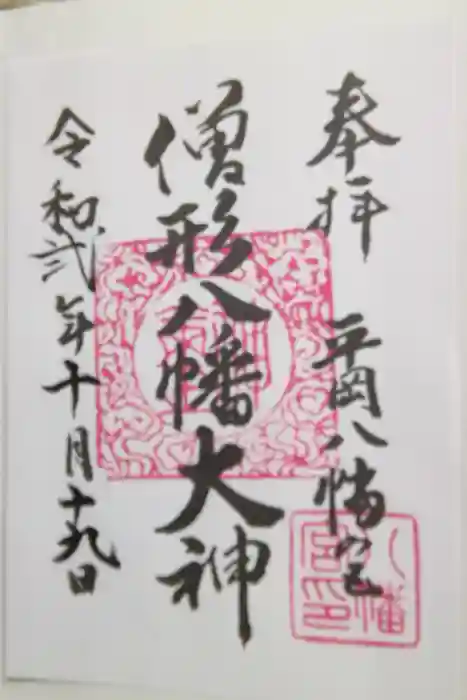 奉拝
平岡八幡宮
僧形八幡大神
令和弐年十月十九日
八幡宮印